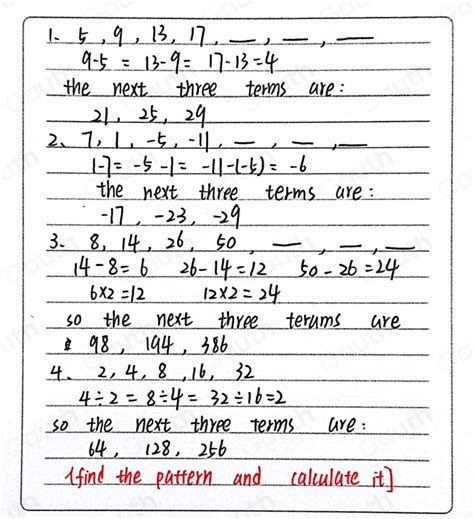 1. 5, 9, 13, 17, __, __, __
9-5 = 13-9= 17-13=4
the next three terms are:
21, 25, 29
2. 7, 1, -5, -11, __, __, __
1-7= -5-1= -11-(-5)= -6
the next three terms are:
-17, -23, -29
3. 8, 14, 26, 50, __, __, __
14-8=6 26-14=12 50-26=24
6×2=12 12×2=24
so the next three terums are
98, 194, 386
4. 2, 4, 8, 16, 32
4÷2=8÷4=32÷16=2
so the next three terms are:
64, 128, 256
[find the pattern and calculate it]